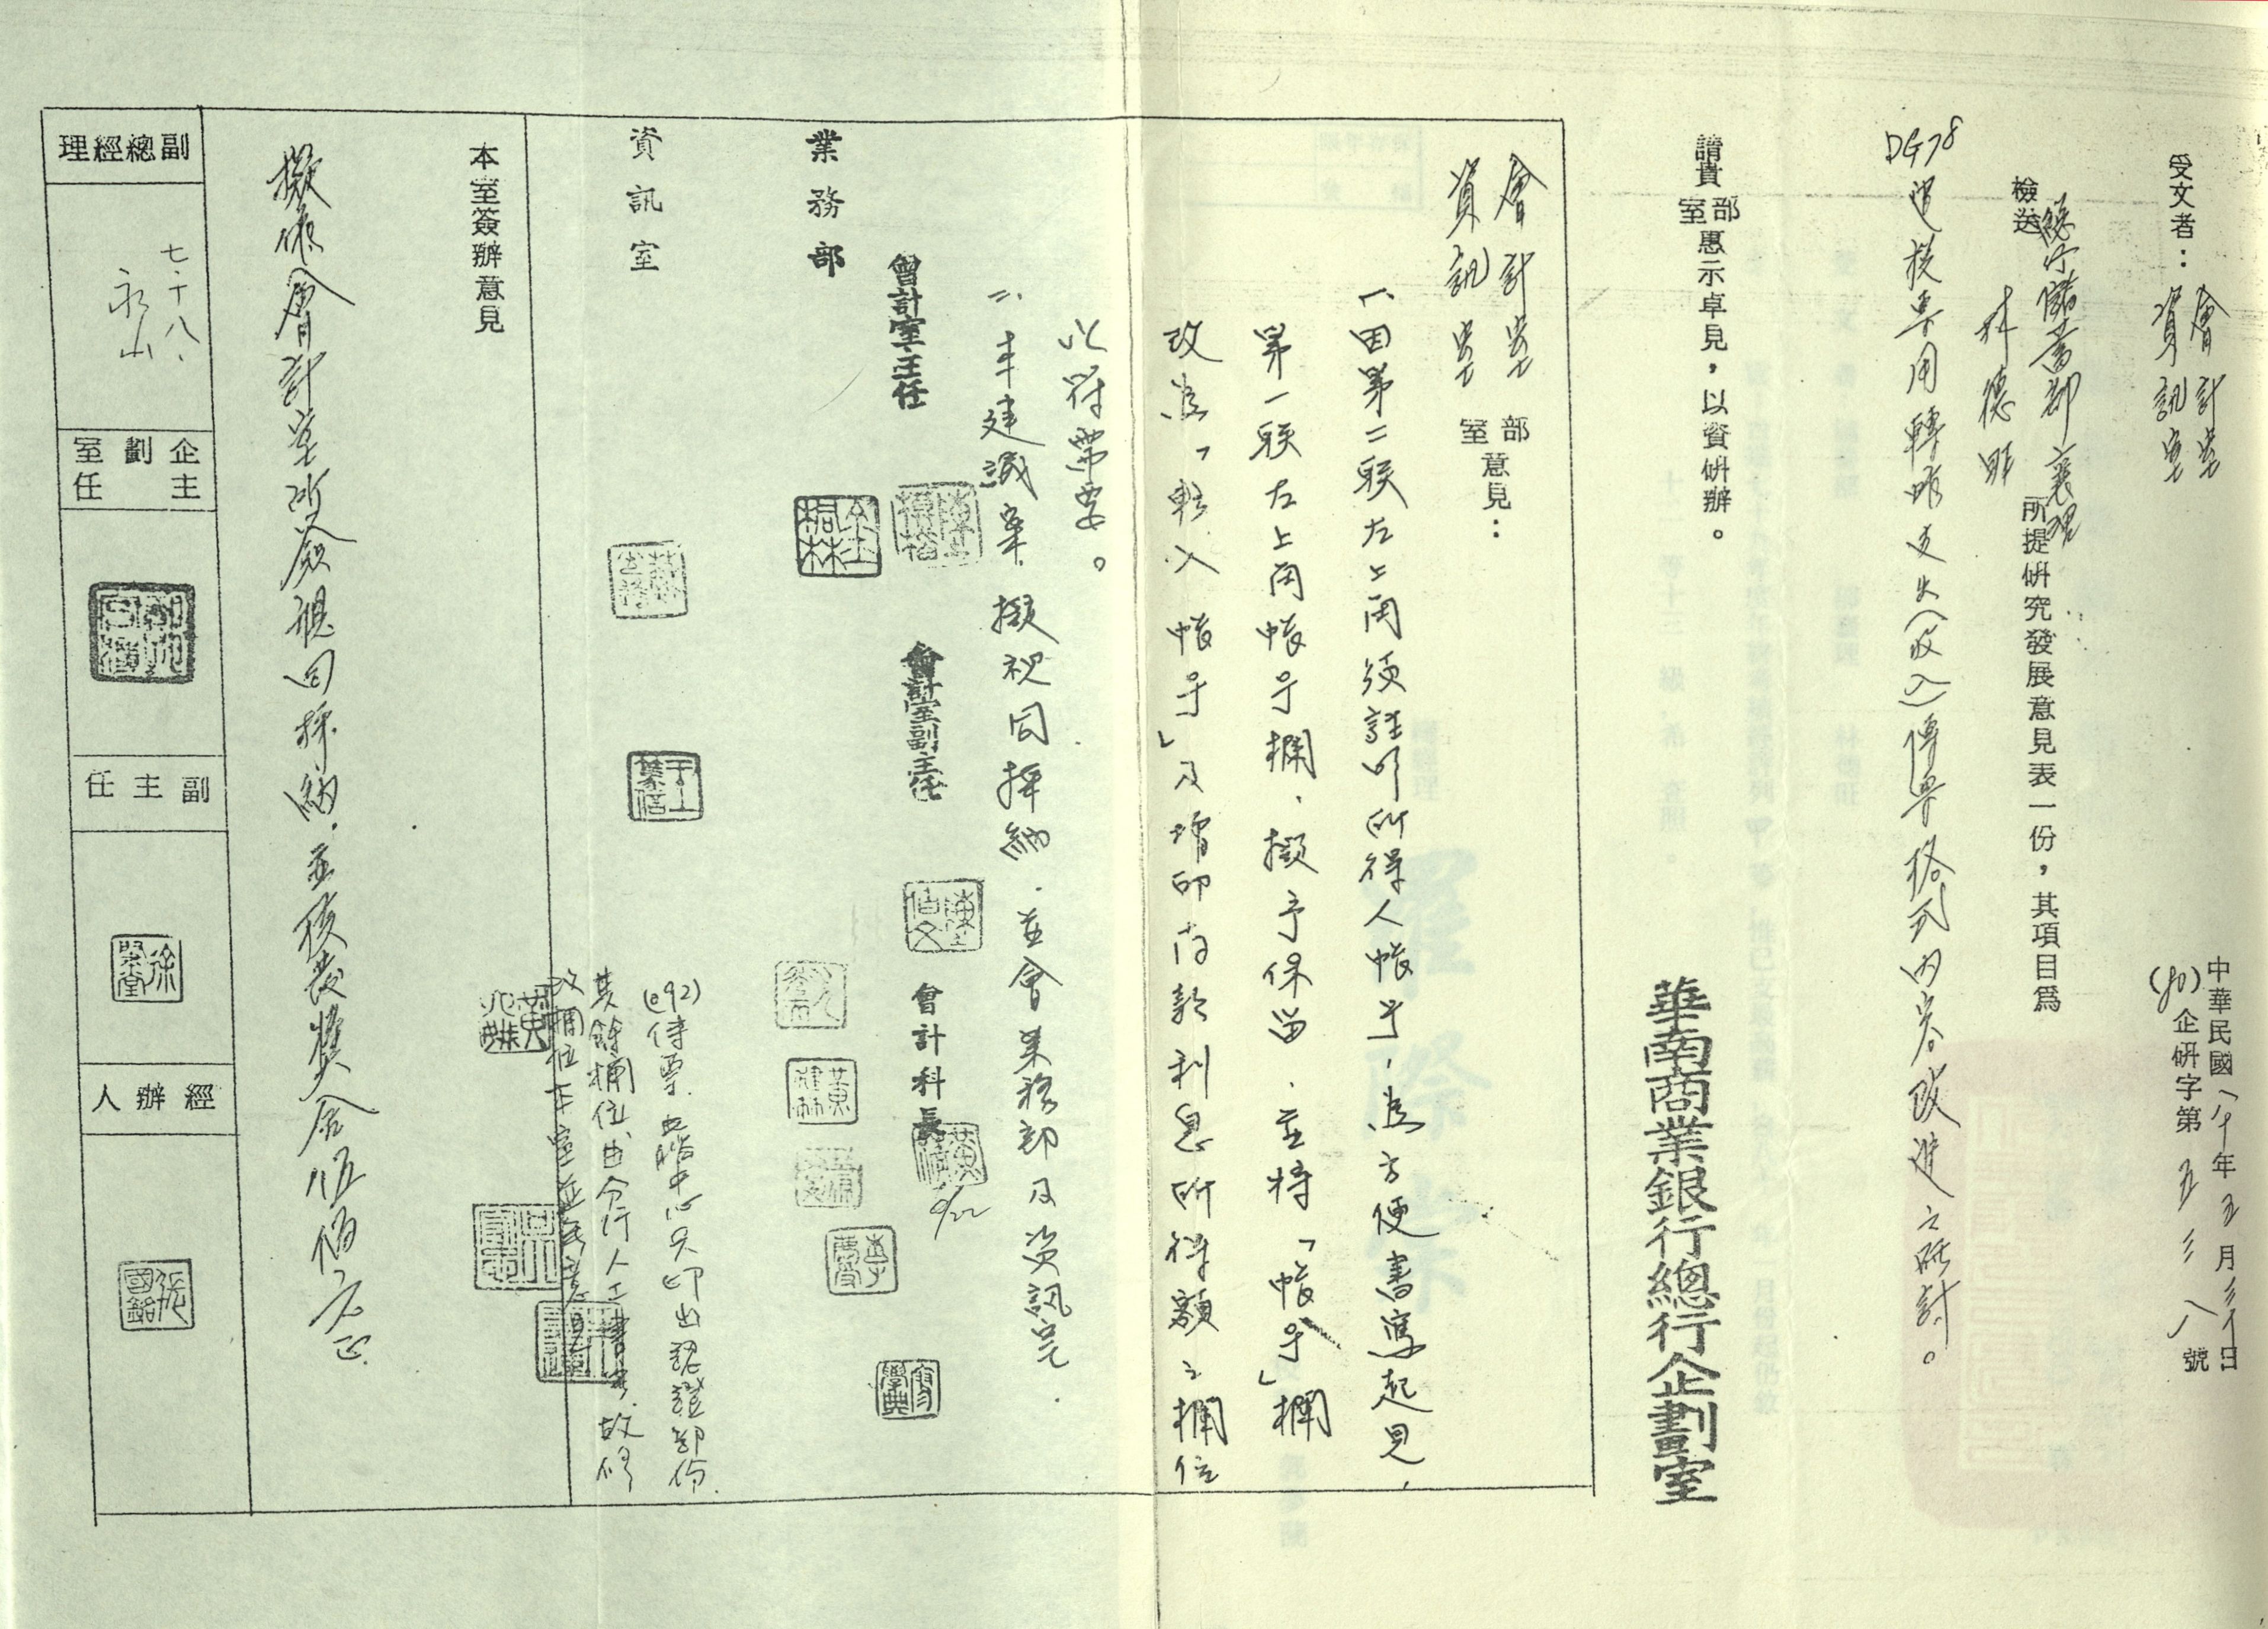 受文者：會計室
資訊室
中華民國八十年五月三十日
(80)企研字第五三八號
檢送總行儲蓄部襄理
林德旺
所提研究發展意見表一份，其項目爲
DG78退搭專用轉帳支出（收入）傳票格式內容改進之研討。
請貴部室惠示卓見，以資研辦。
華南商業銀行總行企劃室
會計室
資訊室
部室意見：
一、因第二聯左上角須註明所得人帳号，為方便書寫起見，
第一聯左上角帳号欄，擬予保留，並將「帳号」欄
改為「轉入帳号」及增印存款利息所得額之欄位
以符需要。
二、本建議案，擬視同採納，並會業務部及資訊室．
會計室主任
會計室副主任
會計科長
業務部
資訊室
(092)傳票，電腦中心只印出認證部份
其餘欄位由分行人工書寫，故修
改欄位本室並無意見
本室簽辦意見
擬依會計室所簽視同採納，並核發獎金伍佰元正．
副總經理
七、十八、
永山
企劃室
主任
副主任
徐
經辦人
張國銘